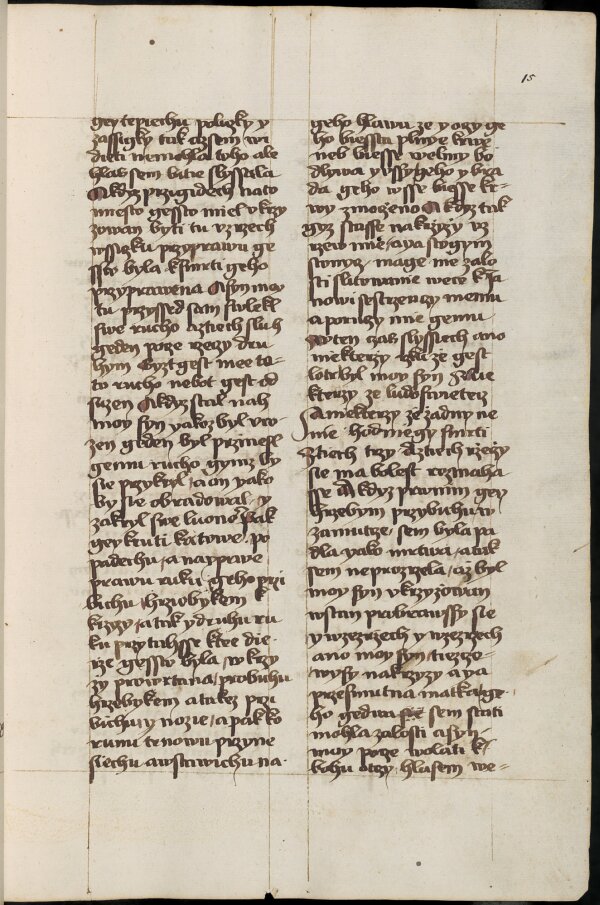 15
gey tepiechu polizky y
zassigky tak czsem wi
dieti nemohla toho ale
hlas sem bitie slyssala
A kdyz przigidech na to
miesto gessto miel vkrzy
zowan byti tu vzrzech
wssiczku przyprawu ge
ssto byla k smrti geho
przyprawena A syn moy
tu przyssed sam swlekl
swe rucho a ztiech sluh
geden poze rzezy dru
hym Gyzt gest mee to=
to rucho nebot gest od
suzen A kdyz stal nah
moy syn yakoz byl vro
zen geden byl przinesl
gemu rucho gymz by
sie przykryl a on yako
by sie obradowal y
zakryl swe luono Pak
gey kruti katowe po
padechu a naprzawe
prawu ruku geho przi
bichu hrziebykem k
krzyzy a tak y druhu ru
ku przytahsse kde die
rze gessto byla w krzy
zy prowrtana probichu
hrzebykem a takez przi
bichu y nozie a pak ko
runu ternowu przyne
siechu a wstawichu na
geho hlawu ze y oczy ge
ho biessta plnye krwe
neb biesse welmy bo
dlywa y vssy geho y bra
da geho wsse biesse kr=
wy zmozeno A kdyz tak
gyz stasse na krzyzy vz
rzew mie a ya s swogym
stonyz mage nie zalo
sti slitowanie wece k Ja
nowi sestrzenczy memu
a poruczy mie gemu
W ten czas slyssiech ano
niekterzy rzku ze gest
lotr byl moy syn Nie
kterzy ze ludosswietcz
A niekterzy ze zadny ne
nie hodniegy smrti
Ztiech trzy A ztiech rzeczy
sie ma bolest rozmaha
sse A kdyz prwnim gey
hrzebym przybichu w
zamutcze sem byla pa
dla yako mrtwa a tak
sem neprozrzela az byl
moy syn vkrzyzowan
wstan probrawssy sie
y wzezrzech y wzezrzech
ano moy syn tiezcze=
wysy na krzyzy a ya
przesmutna matka ge
ho gedwa sem stati
mohla zalosti a syn
moy poze wolati k
bohu otczy hlasem we=